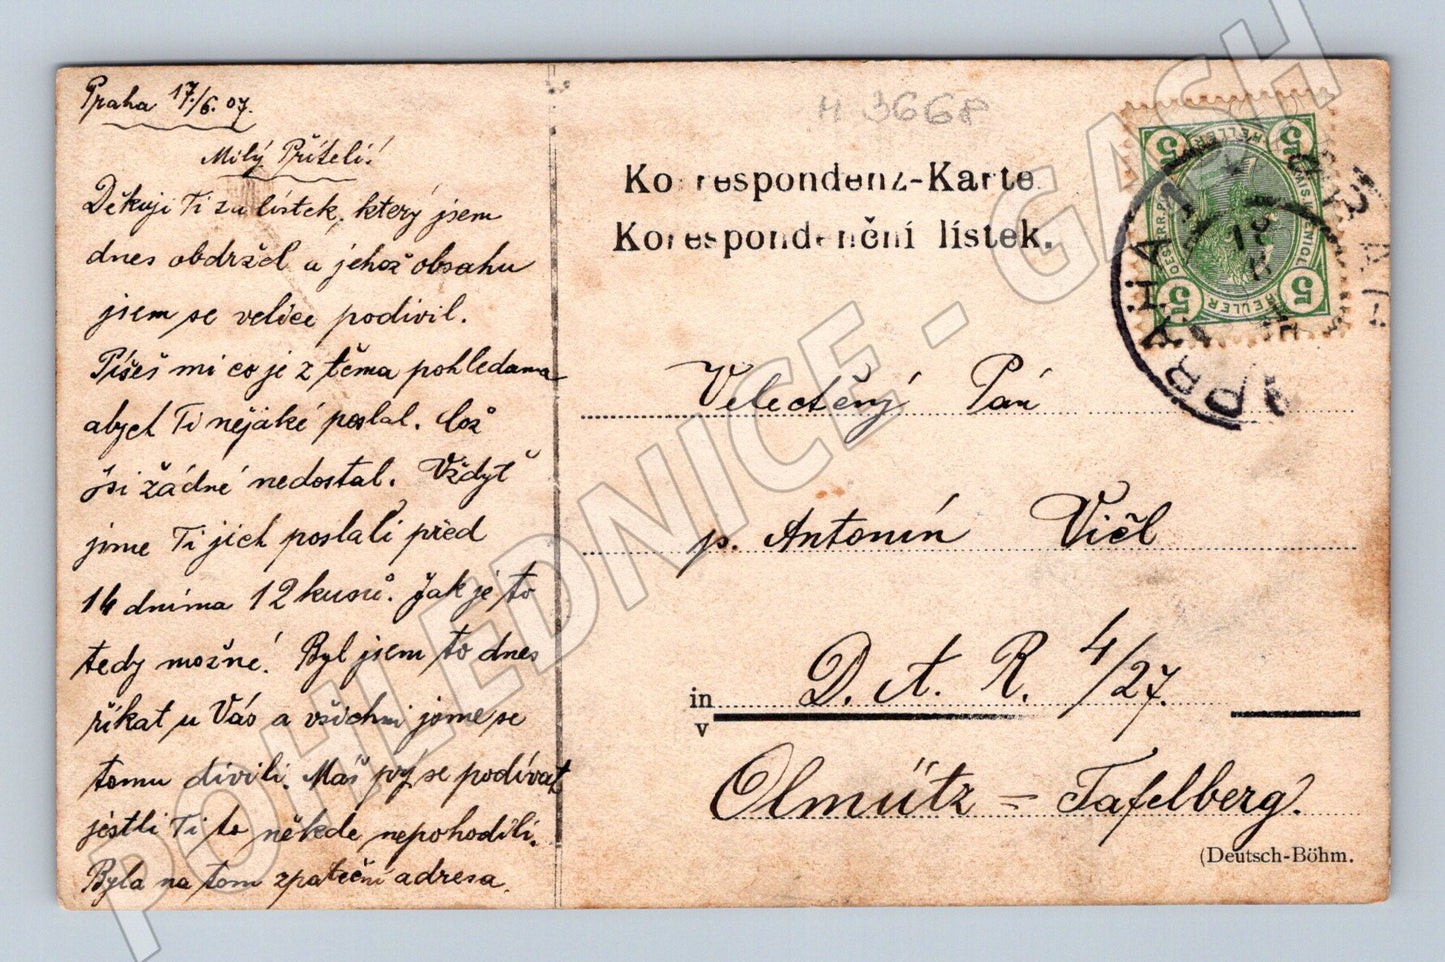 Praha 17/6. 07.
Milý Příteli!
Děkuji Ti za lístek, který jsem
dnes obdržel a jehož obsahu
jsem se velice podivil.
Píšeš mi co je z těma pohledama
abych Ti nějaké poslal. Což
jsi žádné nedostal. Vždyť
jsme Ti jich poslali před
14 dníma 12 kusů. Jak je to
tedy možné! Byl jsem to dnes
říkat u Vás a všichni jsme se
tomu divili. Máš prý se podívat
jestli Ti to někde nepohodili.
Byla na tom zpáteční adresa.
H 3668
Korrespondenz-Karte
Korespondenční lístek.
5 5
5 5
HELLER HELLER
PRAHA
Velectěný Pán
p. Antonín Vičl
in D. A. R. 4/27.
v
Olmütz = Tafelberg.
(Deutsch-Böhm.
POHLEDNICE - GASH